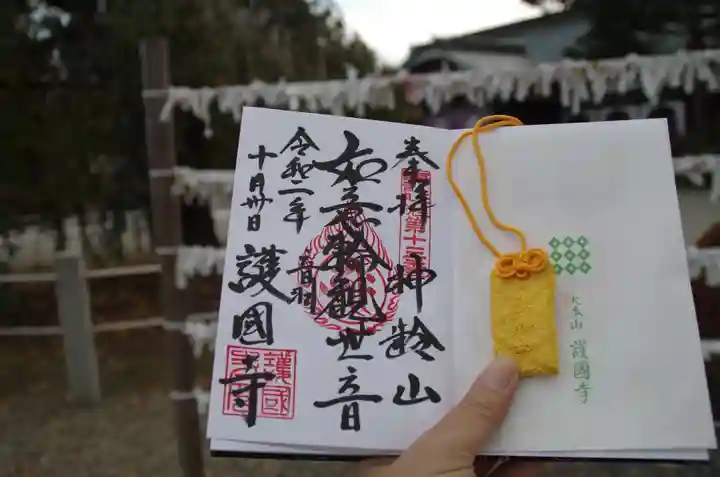 奉拝
神齢山
如意輪観世音
音羽
護國寺
令和二年
十月卅日
護國
大本山 護國寺